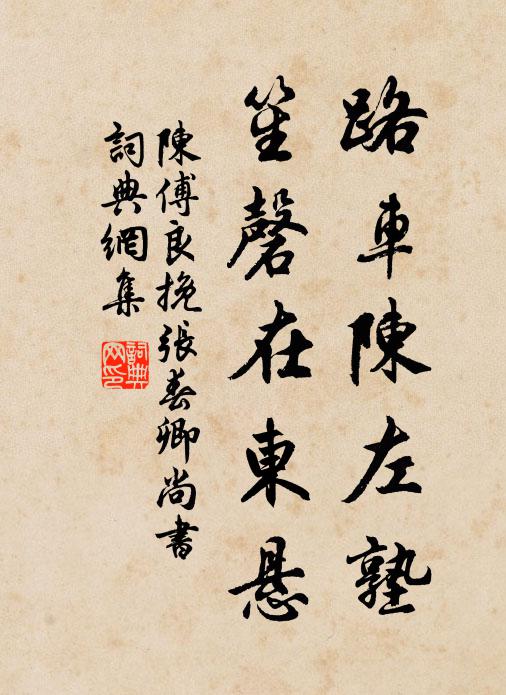 路車陳左塾
笙磬在東悬
陳傅良挽張春卿尚書
詞典網集
詞典網印